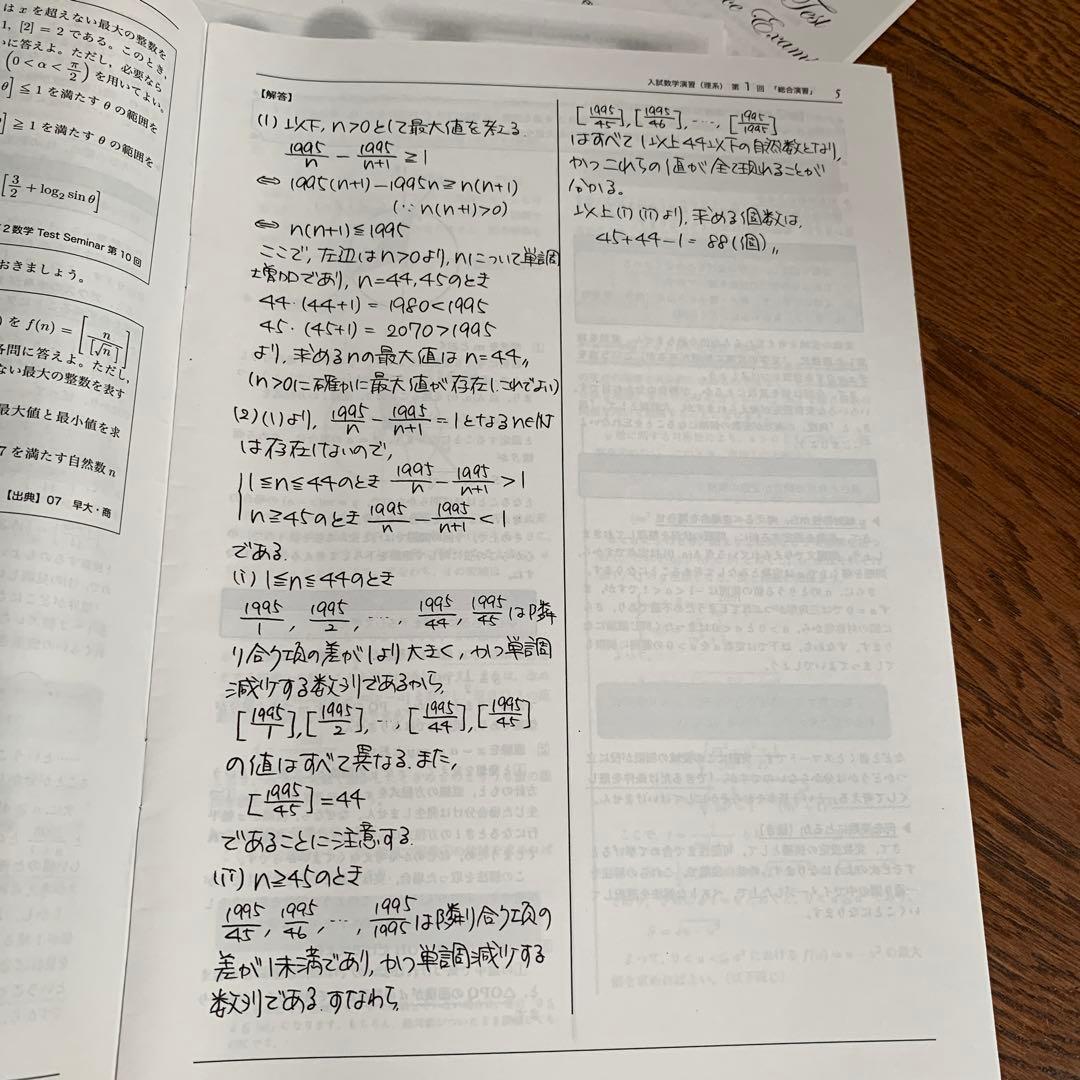 Test
Exam
は x を超えない最大の整数を
1, [2] = 2 である。このとき,
に答えよ。ただし, 必要なら
(0 < α < π/2) を用いてよい。
θ] ≦ 1 を満たす θ の範囲を
≧ 1 を満たす θ の範囲を
[3/2 + log₂ sin θ]
2数学 Test Seminar 第10回
おきましょう。
を f(n) = [n/[√n]]
各問に答えよ。ただし,
ない最大の整数を表す
最大値と最小値を求
7 を満たす自然数 n
【出典】07 早大・商
入試数学演習(理系) 第1回 「総合演習」 5
【解答】
(1) 以下, n>0として最大値を考える.
1995/n − 1995/(n+1) ≧ 1
⇔ 1995(n+1)−1995n ≧ n(n+1)
(∵ n(n+1)>0)
⇔ n(n+1) ≦ 1995
ここで, 左辺はn>0より, nについて単調
増加であり, n=44, 45のとき
44・(44+1) = 1980 < 1995
45・(45+1) = 2070 > 1995
より, 求めるnの最大値は n=44〃
(n>0に確かに最大値が存在しこれでよい)
(2) (1)より, 1995/n − 1995/(n+1) = 1となるn∈ℕ
は存在しないので,
1≦n≦44のとき 1995/n − 1995/(n+1) > 1
n≧45のとき 1995/n − 1995/(n+1) < 1
である.
(i) 1≦n≦44のとき
1995/1, 1995/2, ‥‥, 1995/44, 1995/45 は隣
り合う項の差が1より大きく, かつ単調
減少する数列であるから,
[1995/1], [1995/2], ‥‥, [1995/44], [1995/45]
の値はすべて異なる. また,
[1995/45] = 44
であることに注意する.
(ii) n≧45のとき
1995/45, 1995/46, ‥‥, 1995/1995 は隣り合う項の
差が1未満であり, かつ単調減少する
数列である. すなわち,
[1995/45], [1995/46], ‥‥, [1995/1995]
はすべて1以上44以下の自然数となり,
かつこれらの値が全て現れることが
分かる。
以上(i) (ii)より, 求める個数は,
45+44−1 = 88(個)〃